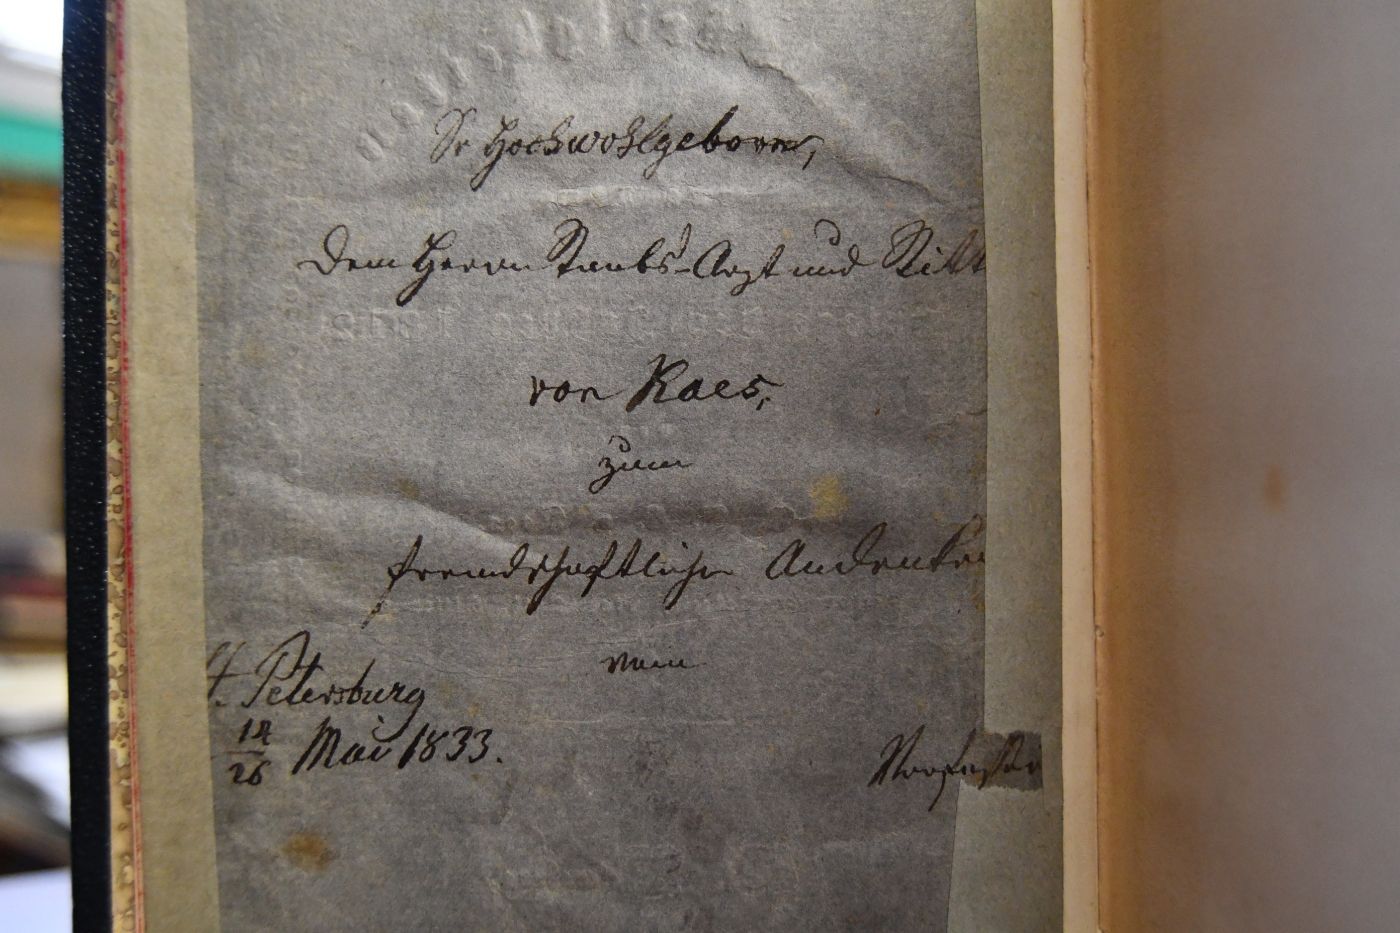 Sr Hochwohlgeborn,
dem Herrn Staabs-Arzt und Ritt
von Raes,
zum
freundschaftlichen Andenken
vom
St. Petersburg
14/26 Mai 1833.
Verfasser